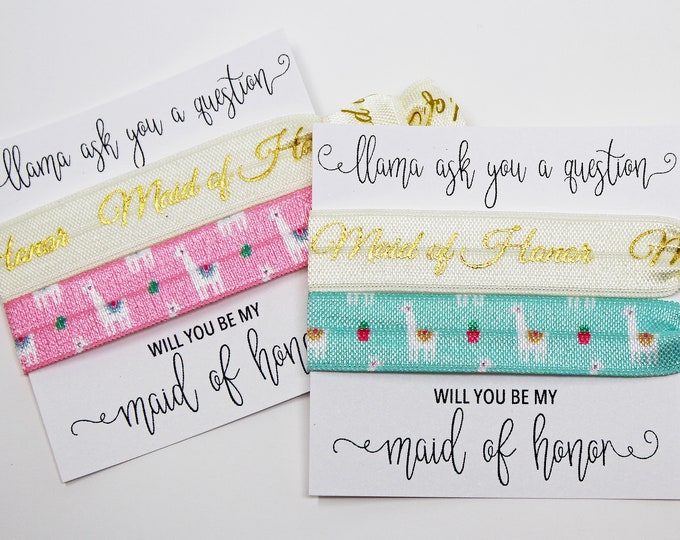 llama ask you a question
Maid of Ho
Honor
WILL YOU BE MY
maid of honor
llama ask you a question
Maid of Honor Ma
WILL YOU BE MY
maid of honor